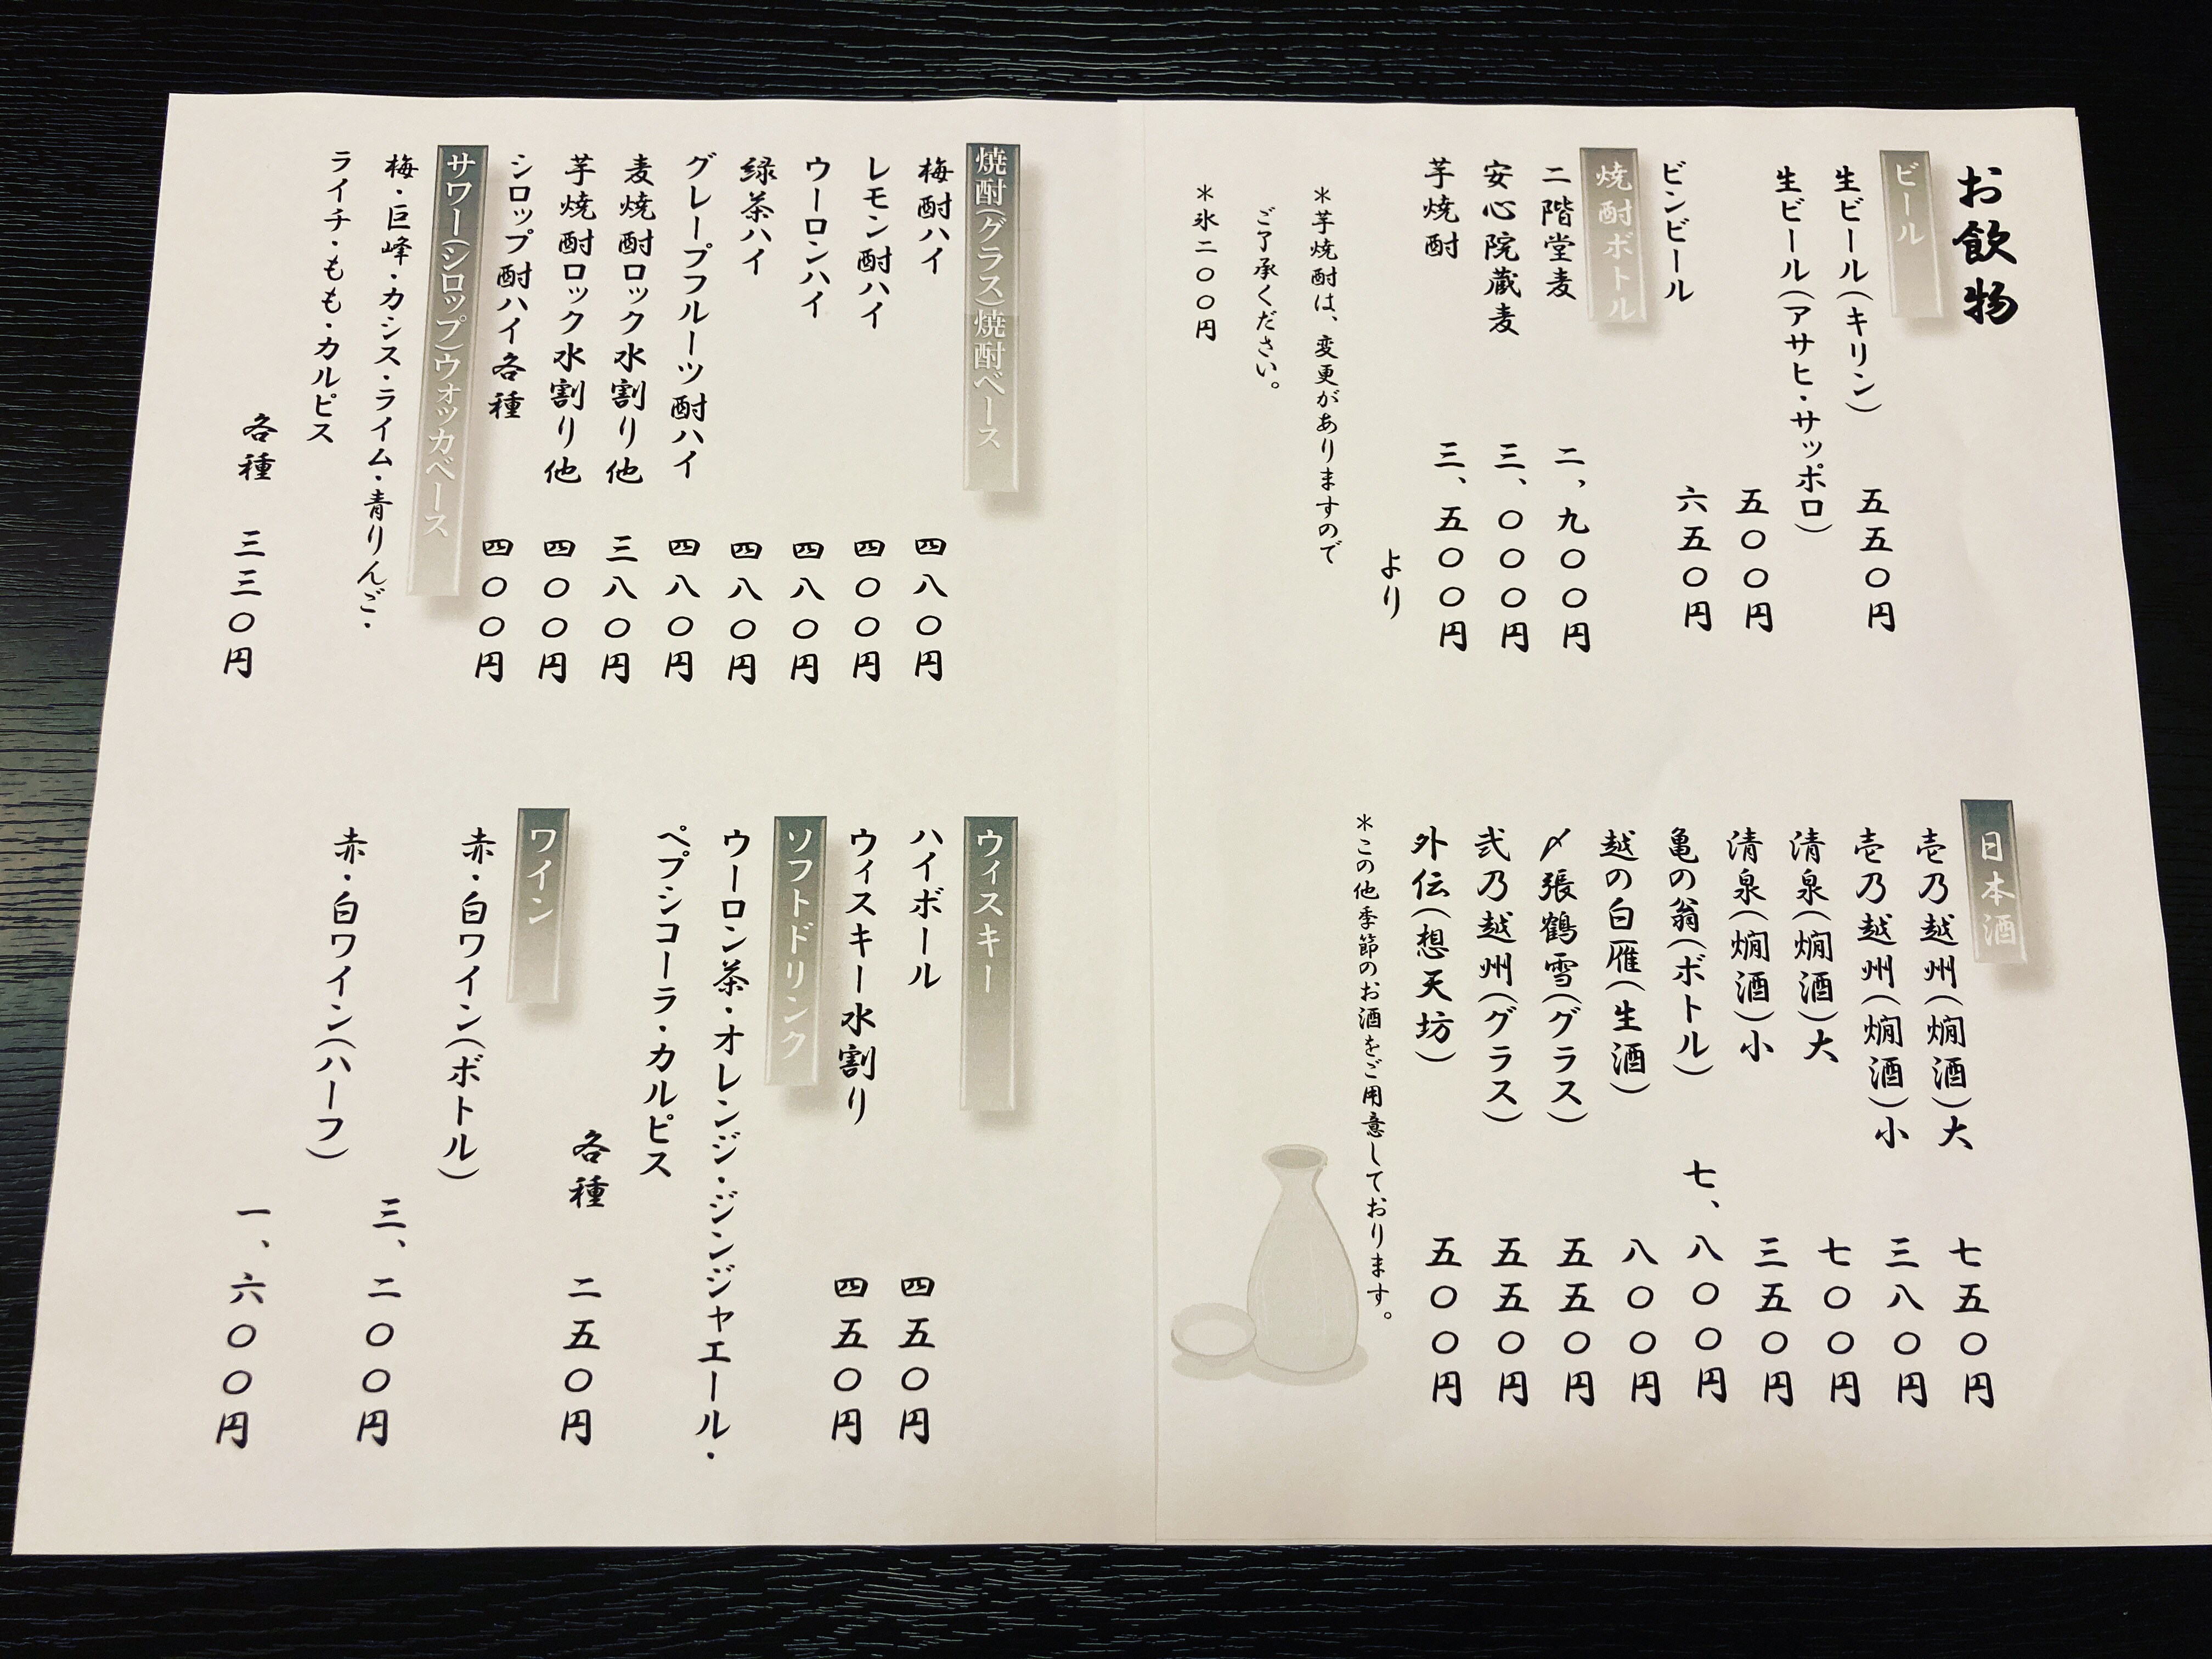 お飲物
ビール
生ビール(キリン)　五五〇円
生ビール(アサヒ・サッポロ)　五〇〇円
ビンビール　六五〇円
焼酎ボトル
二階堂麦　二、九〇〇円
安心院蔵麦　三、〇〇〇円
芋焼酎　三、五〇〇円
より
＊芋焼酎は、変更がありますので
ご了承ください。
＊氷二〇〇円
日本酒
壱乃越州(燗酒)大　七五〇円
壱乃越州(燗酒)小　三八〇円
清泉(燗酒)大　七〇〇円
清泉(燗酒)小　三五〇円
亀の翁(ボトル)　七、八〇〇円
越の白雁(生酒)　八〇〇円
〆張鶴雪(グラス)　五五〇円
弐乃越州(グラス)　五五〇円
外伝(想天坊)　五〇〇円
＊この他季節のお酒をご用意しております。
焼酎(グラス)焼酎ベース
梅酎ハイ　四八〇円
レモン酎ハイ　四〇〇円
ウーロンハイ　四八〇円
緑茶ハイ　四八〇円
グレープフルーツ酎ハイ　四八〇円
麦焼酎ロック水割り他　三八〇円
芋焼酎ロック水割り他　四〇〇円
シロップ酎ハイ各種　四〇〇円
サワー(シロップ)ウォッカベース
梅・巨峰・カシス・ライム・青りんご・
ライチ・もも・カルピス
各種　三三〇円
ウィスキー
ハイボール　四五〇円
ウィスキー水割り　四五〇円
ソフトドリンク
ウーロン茶・オレンジ・ジンジャエール・
ペプシコーラ・カルピス
各種　二五〇円
ワイン
赤・白ワイン(ボトル)　三、二〇〇円
赤・白ワイン(ハーフ)　一、六〇〇円